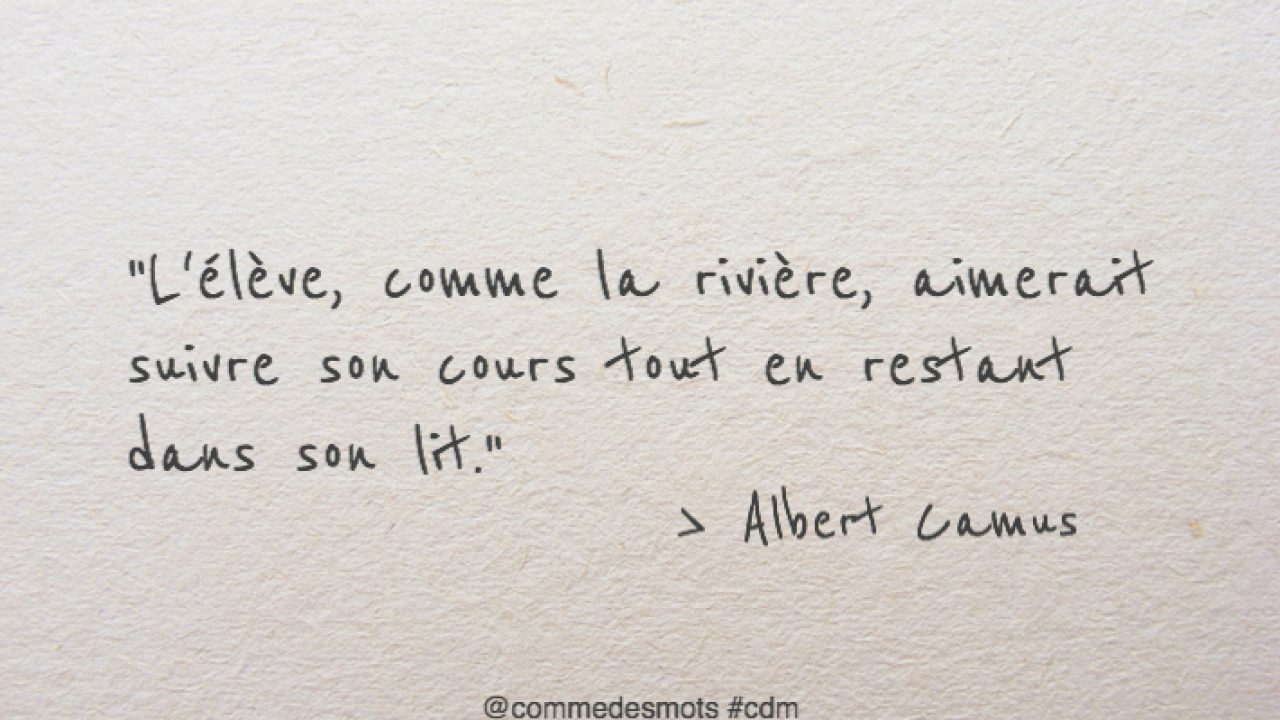 "L'élève, comme la rivière, aimerait
suivre son cours tout en restant
dans son lit."
> Albert Camus
@commedesmots #cdm